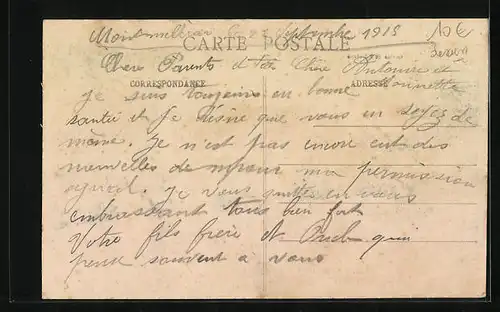 le 27 Septembre 1918
10€
CARTE POSTALE
Chers Parents et
CORRESPONDANCE
ADRESSE
Je suis toujours en bonne
santé et je désire que vous en soyez de
même. Je n'est pas encore eut des
nouvelles de pour ma permission
agricol. Je vous quitte en vous
embrassant tous bien fort
Votre fils frère et Oncle qui
pense souvent à vous